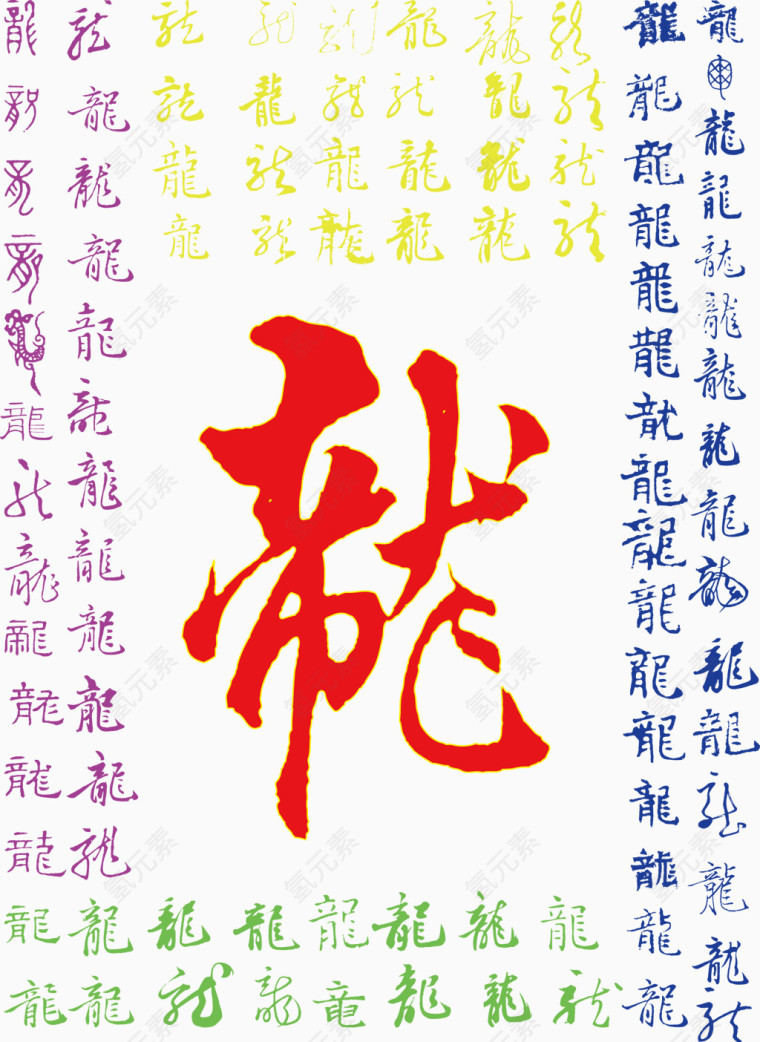 龍龍龍龍龍龍龍龍龍龍龍龍
龍龍龍龍龍龍龍龍龍龍龍龍
龍龍龍龍龍龍
龍龍龍龍龍龍
龍龍龍龍龍龍
龍龍龍龍龍龍
龍
龍龍龍龍龍龍龍龍龍龍龍龍龍龍龍龍
龍龍龍龍龍龍龍龍龍龍龍龍龍龍龍
龍龍龍龍龍龍龍龍
龍龍龍龍竜龍龍龍
氢元素